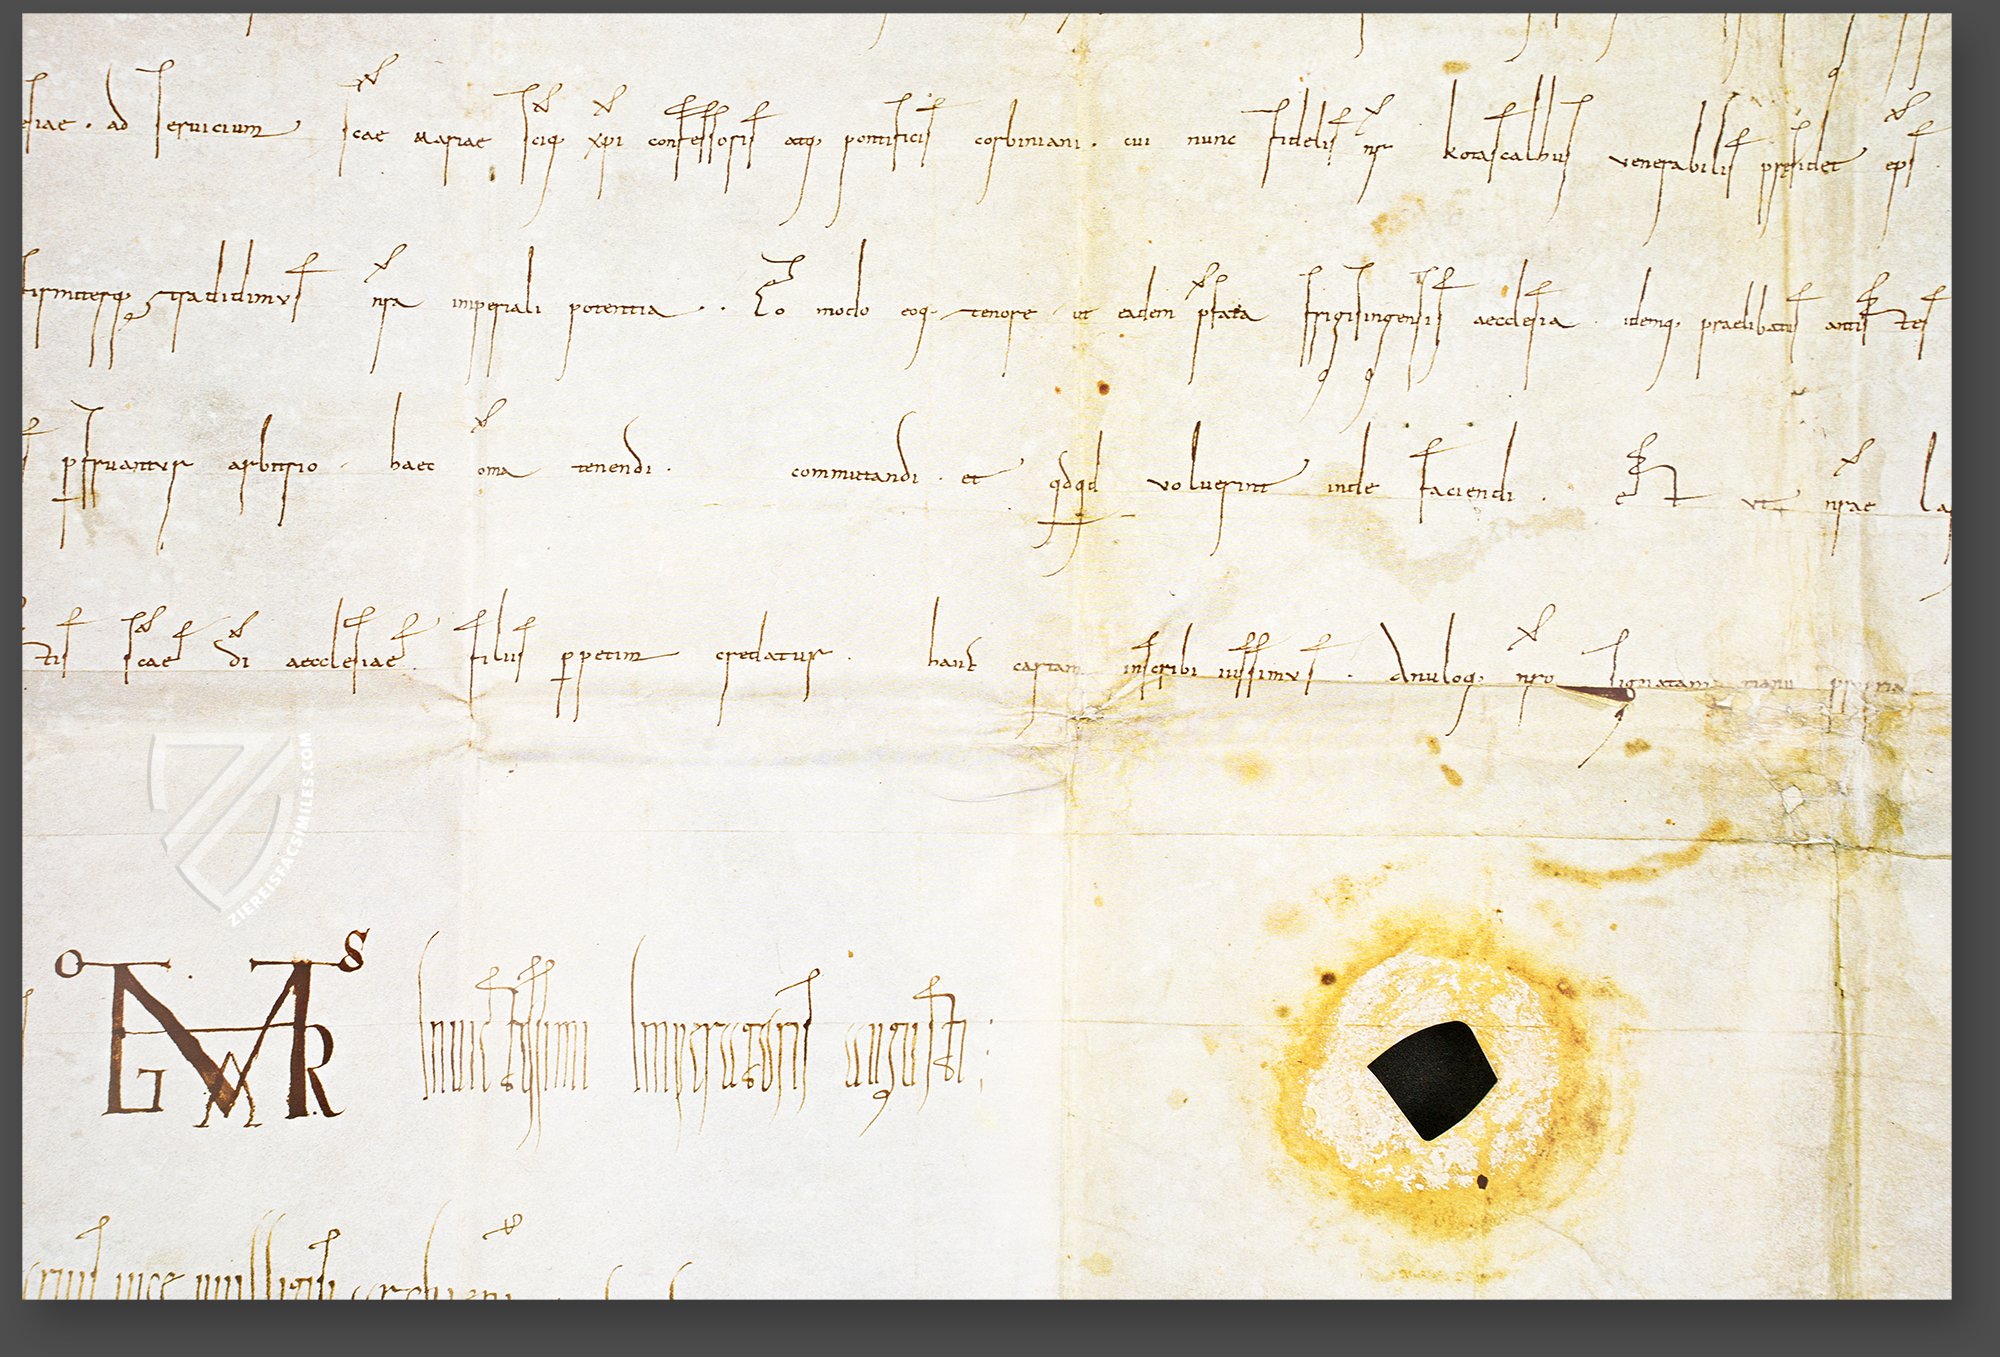 esiae · ad seruicium scae mariae sciq; xpi confessoris atq; pontificis corbiniani · cui nunc fidelis nr kotascalhus venerabilis presidet eps ·
firmiterq; tradidimus nra imperiali potentia · Eo modo eoq; tenore ut eadem pfata frigisingensis aecclesia · idemq; praelibatus antistes
pfruantur arbitrio · haec oma tenendi · commutandi · et qdqd voluerint inde faciendi · Et ut nrae la
tis scae di aecclesiae filius ppetim credatur · hanc cartam inscribi iussimus · Anuloq; nro signatam manu propria
ZIEREISFACSIMILES.COM
Inuictissimi Imperatoris augusti
uice uuilligisi archicap